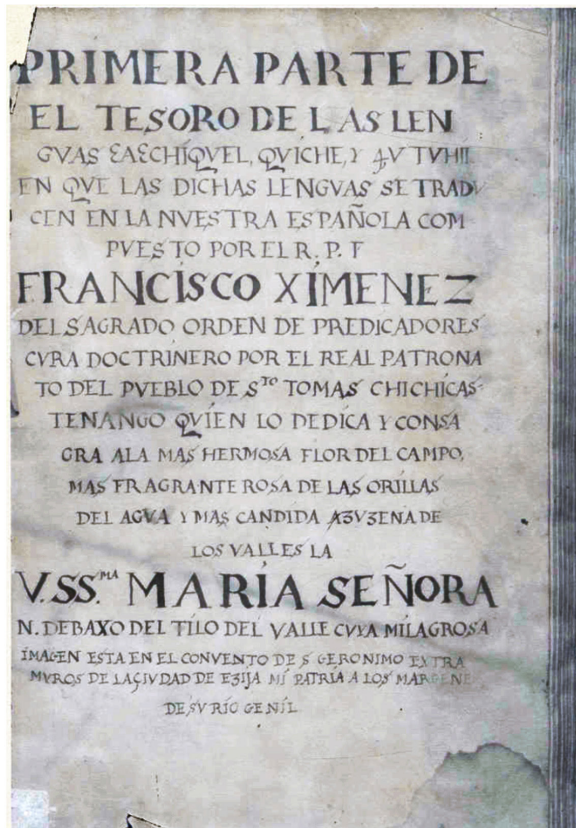 PRIMERA PARTE DE
EL TESORO DE L AS LEN
GVAS ƐAƐCHIQVEL, QVICHE, Y ꜬVTVHIL
EN QVE LAS DICHAS LENGVAS SE TRADV
CEN EN LA NVESTRA ESPAÑOLA COM
PVESTO POR EL R. P. F
FRANCISCO XÍMENEZ
DEL SAGRADO ORDEN DE PREDICADORES
CVRA DOCTRINERO POR EL REAL PATRONA
TO DEL PVEBLO DE Sᵀᴼ TOMAS CHICHÍCAS-
TENANGO QVÍEN LO DEDÍCA Y CONSA
GRA ALA MAS HERMOSA FLOR DEL CAMPO,
MAS FRAGRANTE ROSA DE LAS ORILLAS
DEL AGVA Y MAS CANDIDA AƷVƷENA DE
LOS VALLES LA
V. SS.ᴹᴬ MARÍA SEÑORA
N. DEBAXO DEL TÍLO DEL VALLE CVYA MÍLAGROSA
ÍMAGEN ESTA EN EL CONVENTO DE S GERONIMO EXTRA
MVROS DE LA ÇIVDAD DE EƷIJA MÍ PATRIA A LOS MARGENE
DE SV RÍO GENÍL